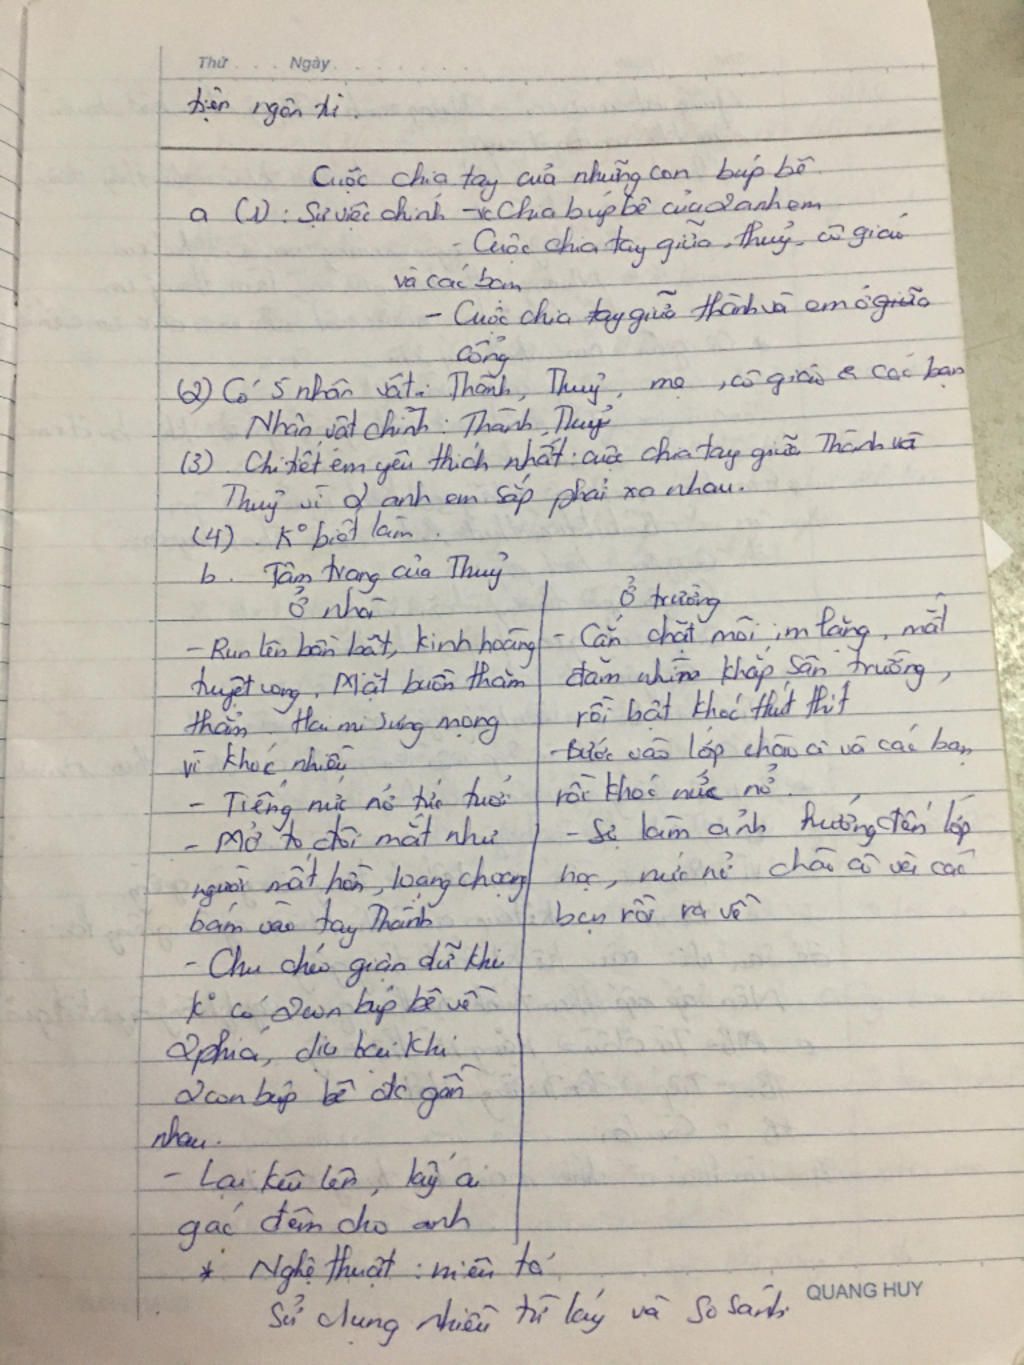 Thứ . . . . Ngày . . . . . . . . .
tiện ngôn từ.
Cuộc chia tay của những con búp bê
a (1): Sự việc chính - Chia búp bê của 2 anh em
- Cuộc chia tay giữa Thuỷ, cô giáo
và các bạn
- Cuộc chia tay giữa Thành và em ở giữa
cổng
(2) Có 5 nhân vật: Thành, Thuỷ, mẹ, cô giáo & các bạn
Nhân vật chính: Thành, Thuỷ
(3). Chi tiết em yêu thích nhất: cuộc chia tay giữa Thành và
Thuỷ vì 2 anh em sắp phải xa nhau.
(4). K° biết làm.
b. Tâm trạng của Thuỷ
Ở nhà
- Run lên bần bật, kinh hoàng
tuyệt vọng. Mặt buồn thăm
thẳm. Hai mi sưng mọng
vì khóc nhiều
- Tiếng nức nở tức tưởi
- Mở to đôi mắt như
người mất hồn, loạng choạng
bám vào tay Thành
- Chu chéo giận dữ khi
k° có 2 con búp bê về
2 phía, dịu lại khi
2 con búp bê đc gần
nhau.
- Lại kêu lên, lấy ai
gác đêm cho anh
Ở trường
- Cắn chặt môi im lặng, mắt
đăm nhìn khắp sân trường,
rồi bật khóc thút thít
- Bước vào lớp chào cô và các bạn
rồi khóc nức nở.
- Sự làm ảnh hưởng đến lớp
học, nức nở chào cô và các
bạn rồi ra về
* Nghệ thuật: miêu tả
Sử dụng nhiều từ láy và so sánh.
QUANG HUY